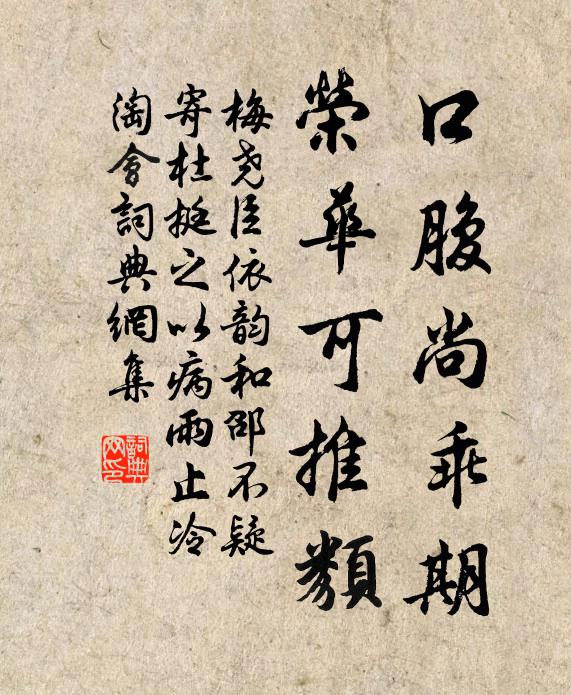 口腹尚乖期
榮華可推類
梅尧臣依韵和邵不疑
寄杜挺之以病雨止冷
淘會詞典網集
詞典網